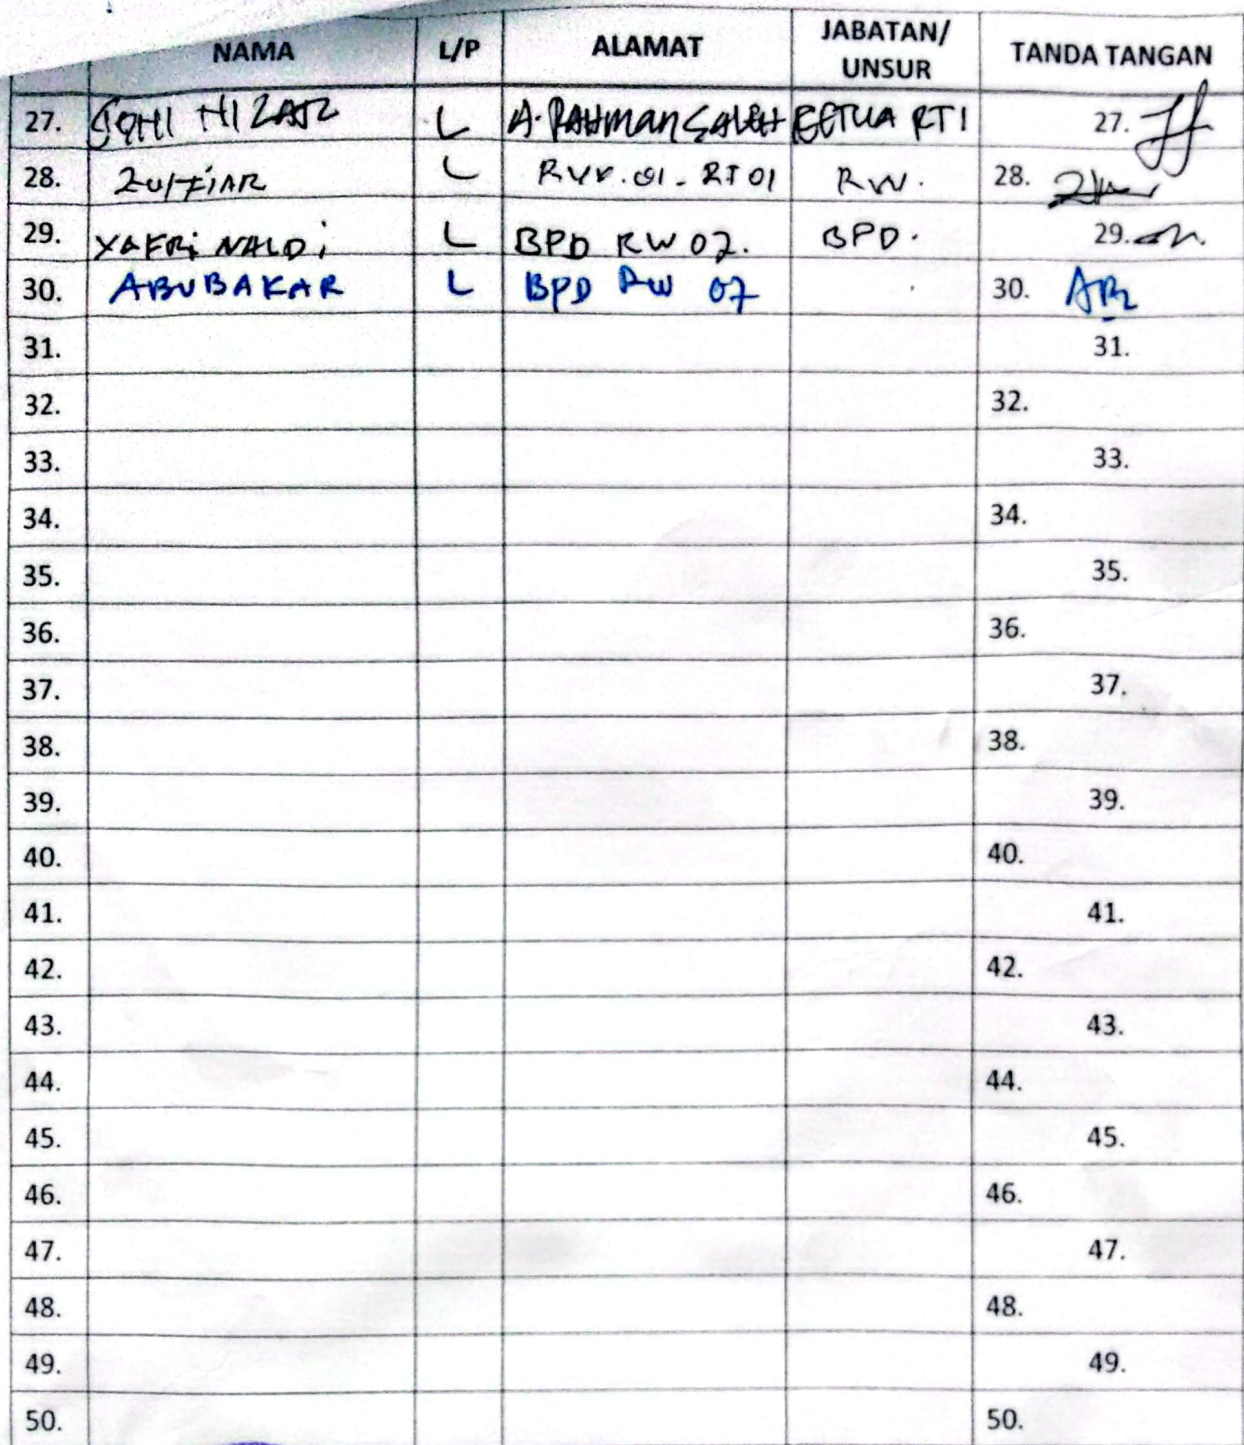 NAMA L/P ALAMAT JABATAN/ UNSUR TANDA TANGAN
27. L A. RAHMAN SALEH KETUA RT 1 27.
28. L RW. 01 - RT 01 RW. 28.
29. YAFRI NALDI L BPD RW 02. BPD. 29.
30. ABUBAKAR L BPD RW 07 30.
31. 31.
32. 32.
33. 33.
34. 34.
35. 35.
36. 36.
37. 37.
38. 38.
39. 39.
40. 40.
41. 41.
42. 42.
43. 43.
44. 44.
45. 45.
46. 46.
47. 47.
48. 48.
49. 49.
50. 50.